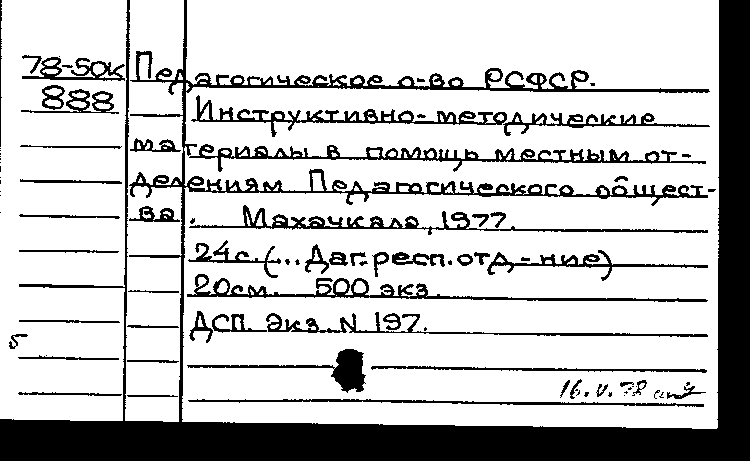 78-50к Педагогическое о-во РСФСР.
888 Инструктивно-методические
материалы в помощь местным от-
делениям Педагогического общест-
ва. Махачкала, 1977.
24с. (... Даг. респ. отд,-ние)
20см. 500 экз.
ДСП. Экз. N 197.
5
16.V.78